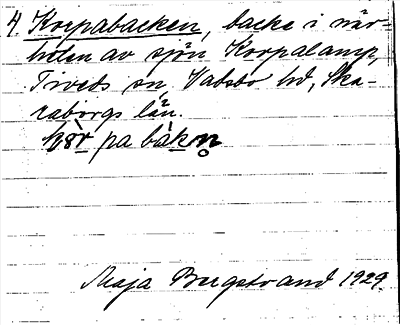 4. Korpabacken, backe i när-
heten av sjön Korpalamp,
Tiveds sn, Vadsbo hd, Ska-
raborgs län.
pa
Maja Bergstrand 1929.